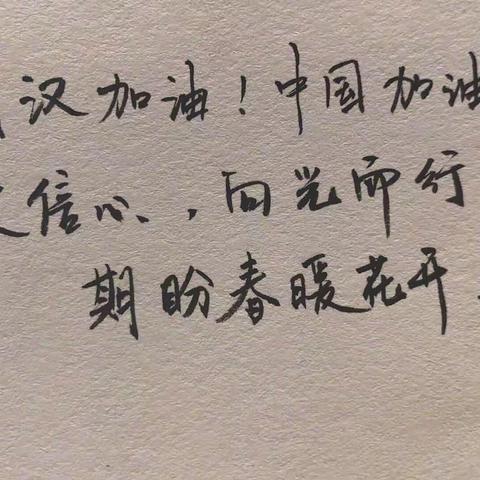 汉加油！中国加油
信心，向光而行
期盼春暖花开